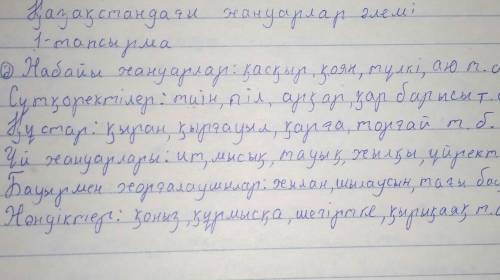 Қазақстандағы жануарлар әлемі
1-тапсырма
② Жабайы жануарлар: қасқыр, қоян, түлкі, аю т.б
Сүтқоректілер: тиін, піл, арқар, қар барысы т.
Құстар: қыран, қырғауыл, қарға, торғай т.б.
Үй жануарлары: ит, мысық, тауық, жылқы, үйрек т
Бауырмен жорғалаушылар: жылан, шылаусын, тағы бас
Жәндіктер: қоңыз, құрмысқа, шегіртке, қырықаяқ т.б